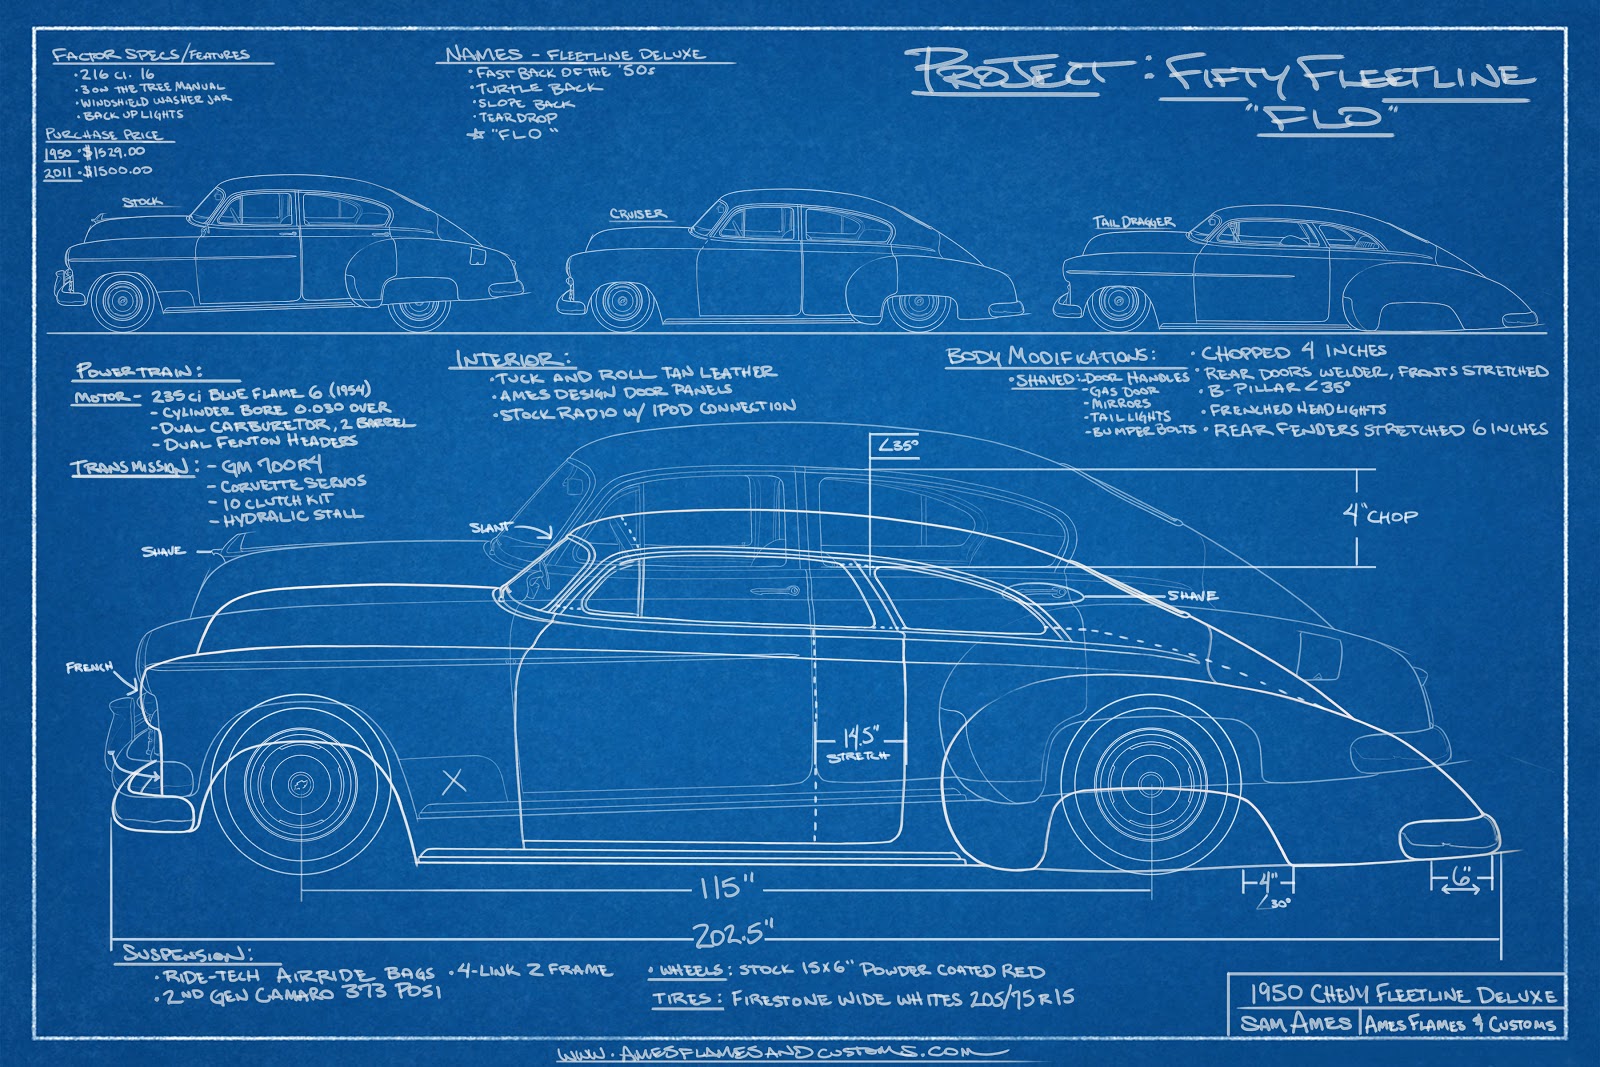 FACTOR SPECS/FEATURES
·216 CI. I6
·3 ON THE TREE MANUAL
·WINDSHIELD WASHER JAR
·BACK UP LIGHTS
PURCHASE PRICE
1950 ·$1529.00
2011 ·$1500.00
NAMES - FLEETLINE DELUXE
·FAST BACK OF THE '50s
·TURTLE BACK
·SLOPE BACK
·TEARDROP
☆ "FLO"
PROJECT: FIFTY FLEETLINE
"FLO"
STOCK
CRUISER
TAIL DRAGGER
POWERTRAIN:
MOTOR- 235ci BLUE FLAME 6 (1954)
-CYLINDER BORE 0.030 OVER
-DUAL CARBURETOR, 2 BARREL
-DUAL FENTON HEADERS
TRANSMISSION: -GM 700R4
-CORVETTE SERVOS
-10 CLUTCH KIT
-HYDRALIC STALL
INTERIOR:
·TUCK AND ROLL TAN LEATHER
·AMES DESIGN DOOR PANELS
·STOCK RADIO W/ IPOD CONNECTION
BODY MODIFICATIONS:
·SHAVED:-DOOR HANDLES
-GAS DOOR
-MIRRORS
-TAILLIGHTS
-BUMPER BOLTS
·CHOPPED 4 INCHES
·REAR DOORS WELDER, FRONTS STRETCHED
·B-PILLAR ∠35°
·FRENCHED HEADLIGHTS
·REAR FENDERS STRETCHED 6 INCHES
∠35°
4" CHOP
SLANT
SHAVE
SHAVE
FRENCH
14.5"
STRETCH
X
115"
4"
∠30°
6"
202.5"
SUSPENSION:
·RIDE-TECH AIRRIDE BAGS ·4-LINK Z FRAME
·2ND GEN CAMARO 373 POSI
·WHEELS: STOCK 15X6" POWDER COATED RED
TIRES: FIRESTONE WIDE WHITES 205/75R15
1950 CHEVY FLEETLINE DELUXE
SAM AMES AMES FLAMES & CUSTOMS
WWW.AMESFLAMESANDCUSTOMS.COM